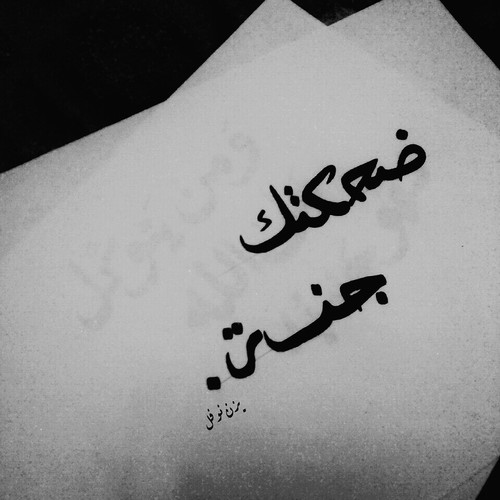 ضحكتك
جنة.
يزن نوفل